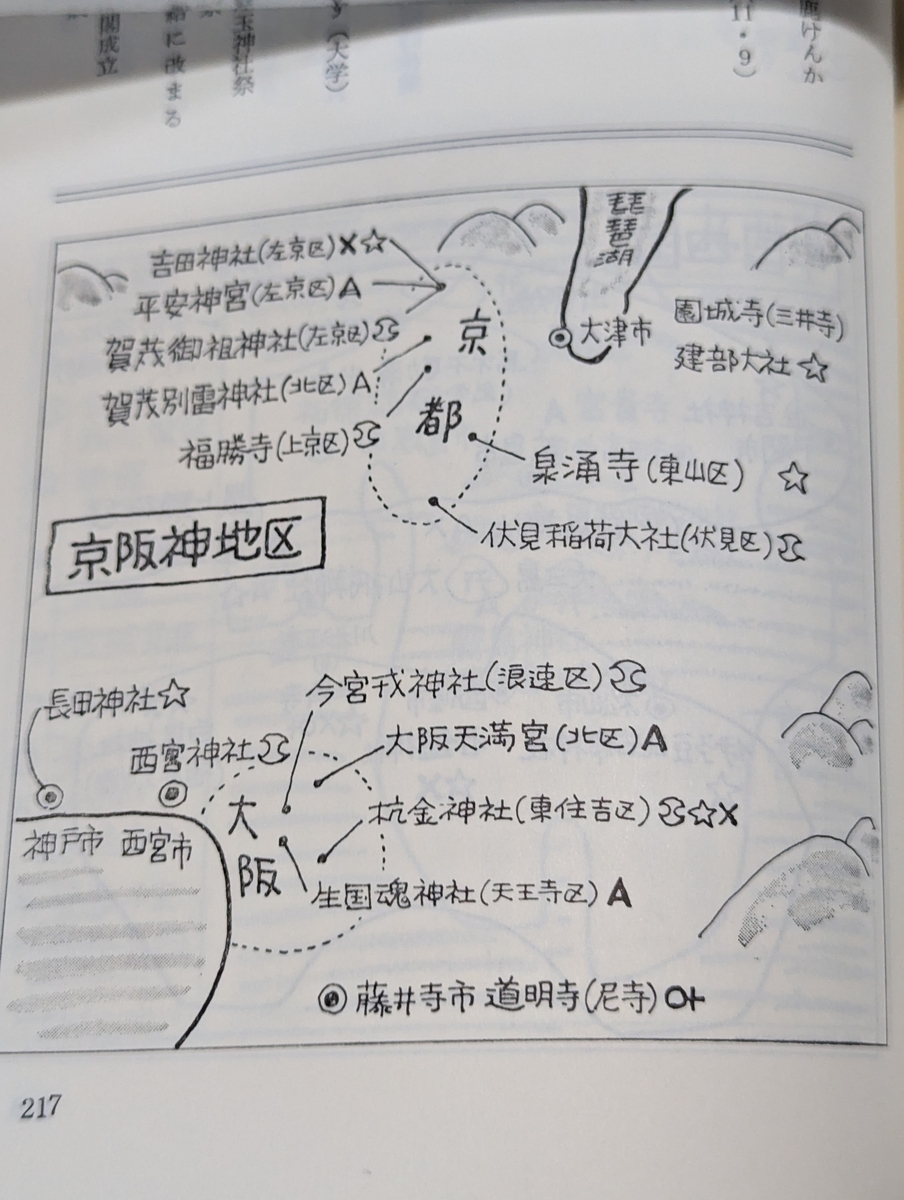 鹿けんか
11・9)
(大学)
玉神社祭
給に改まる
閣成立
琵琶湖
吉田神社(左京区)X☆
平安神宮(左京区)A
賀茂御祖神社(左京区)
賀茂別雷神社(北区)A
福勝寺(上京区)
京都
大津市
園城寺(三井寺)
建部大社☆
泉涌寺(東山区) ☆
伏見稲荷大社(伏見区)
京阪神地区
長田神社☆
西宮神社
神戸市
西宮市
大阪
今宮戎神社(浪速区)
大阪天満宮(北区)A
杭全神社(東住吉区)☆X
生国魂神社(天王寺区)A
藤井寺市 道明寺(尼寺)
217